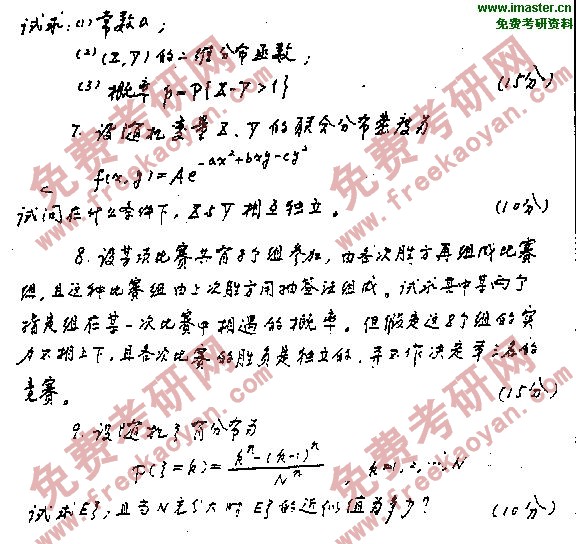 www.imaster.cn
免费考研资料
试求:(1)常数a;
(2)(X,Y)的二维分布函数;
(3)概率 p=P{X-Y>1} (15分)
7. 设随机变量X、Y的联合分布密度为
f(x,y)=Ae^{-ax²+bxy-cy²}
试问在什么条件下,X与Y相互独立。 (10分)
8. 设某项比赛共有8个组参加,由各次胜方再组成比赛
组,且这种比赛组由上次胜方用抽签法组成。试求其中某两个
指定组在某一次比赛中相遇的概率。但假定这8个组的实
力不相上下,且各次比赛的胜负是独立的,并不作决定第三名的
竞赛。 (15分)
9. 设随机ξ有分布为
P(ξ=k)=\frac{k^n-(k-1)^n}{N^n}, k=1,2,…,N
试求Eξ,且当N充分大时Eξ的近似值为多少? (10分)
免费考研网
www.freekaoyan.com
免费考研网
www.freekaoyan.com
免费考研网
www.freekaoyan.com
免费考研网
www.freekaoyan.com